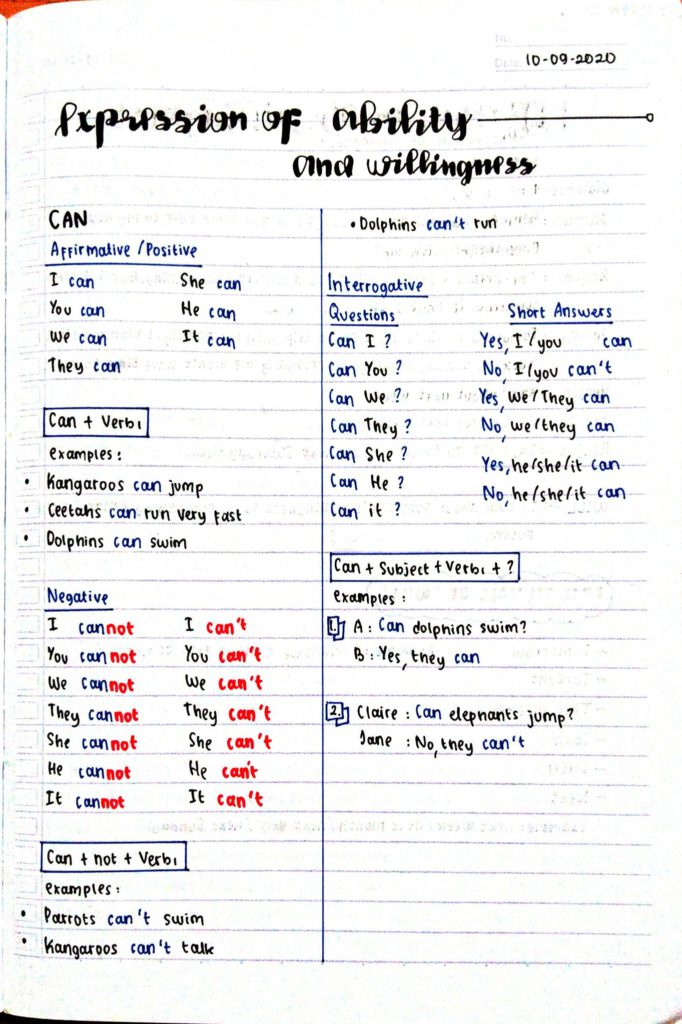 No.
Date. 10-09-2020
Expression of Ability
and Willingness
CAN
Affirmative/Positive
I can She can
You can He can
We can It can
They can
Can + Verb1
examples:
• Kangaroos can jump
• Ceetahs can run very fast
• Dolphins can swim
Negative
I cannot I can't
You cannot You can't
We cannot We can't
They cannot They can't
She cannot She can't
He cannot He can't
It cannot It can't
Can + not + Verb1
examples:
• Parrots can't swim
• Kangaroos can't talk
• Dolphins can't run
Interrogative
Questions Short Answers
Can I? Yes, I/you can
Can You? No, I/you can't
Can We? Yes, we/They can
Can They? No, we/they can
Can She? Yes, he/she/it can
Can He? No, he/she/it can
Can it?
Can + Subject + Verb1 + ?
examples:
1. A: Can dolphins swim?
B: Yes, they can
2. Claire: Can elephants jump?
Jane: No, they can't